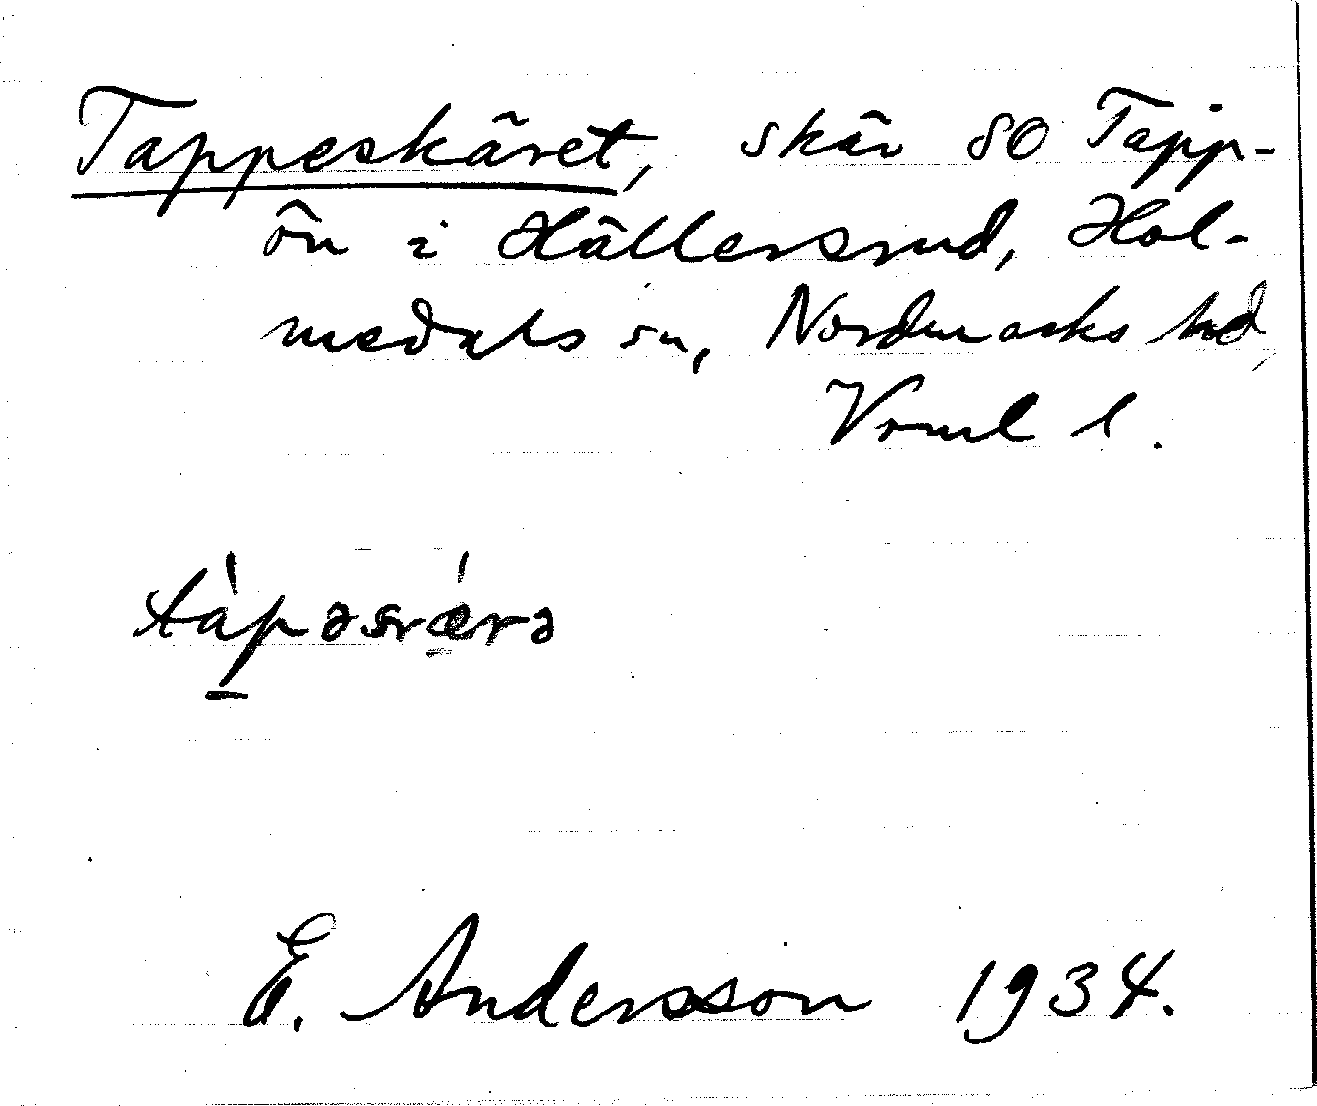 Tappeskäret, skär SO Tapp-
ön i Hällersrud, Hol-
medals sn, Nordmarks hd,
Vrml l.
tàpəsʀǽrə
E. Andersson 1934.